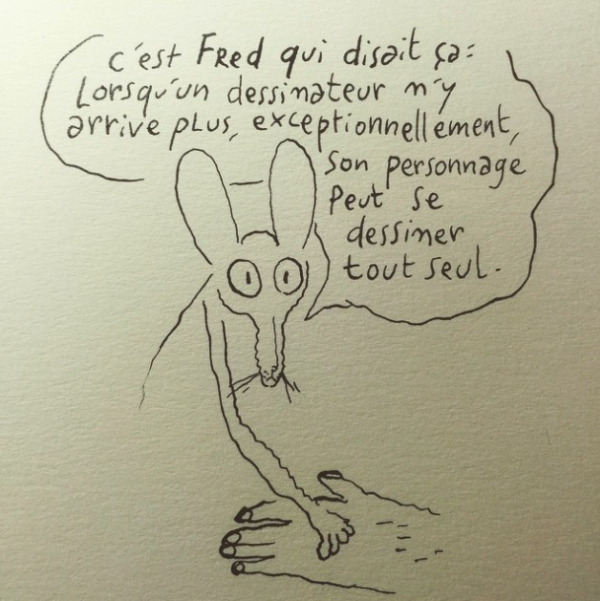 c'est FRed qui disait ça:
Lorsqu'un dessinateur n'y
arrive pLus, exceptionnellement,
son personnage
Peut se
dessiner
tout seul.